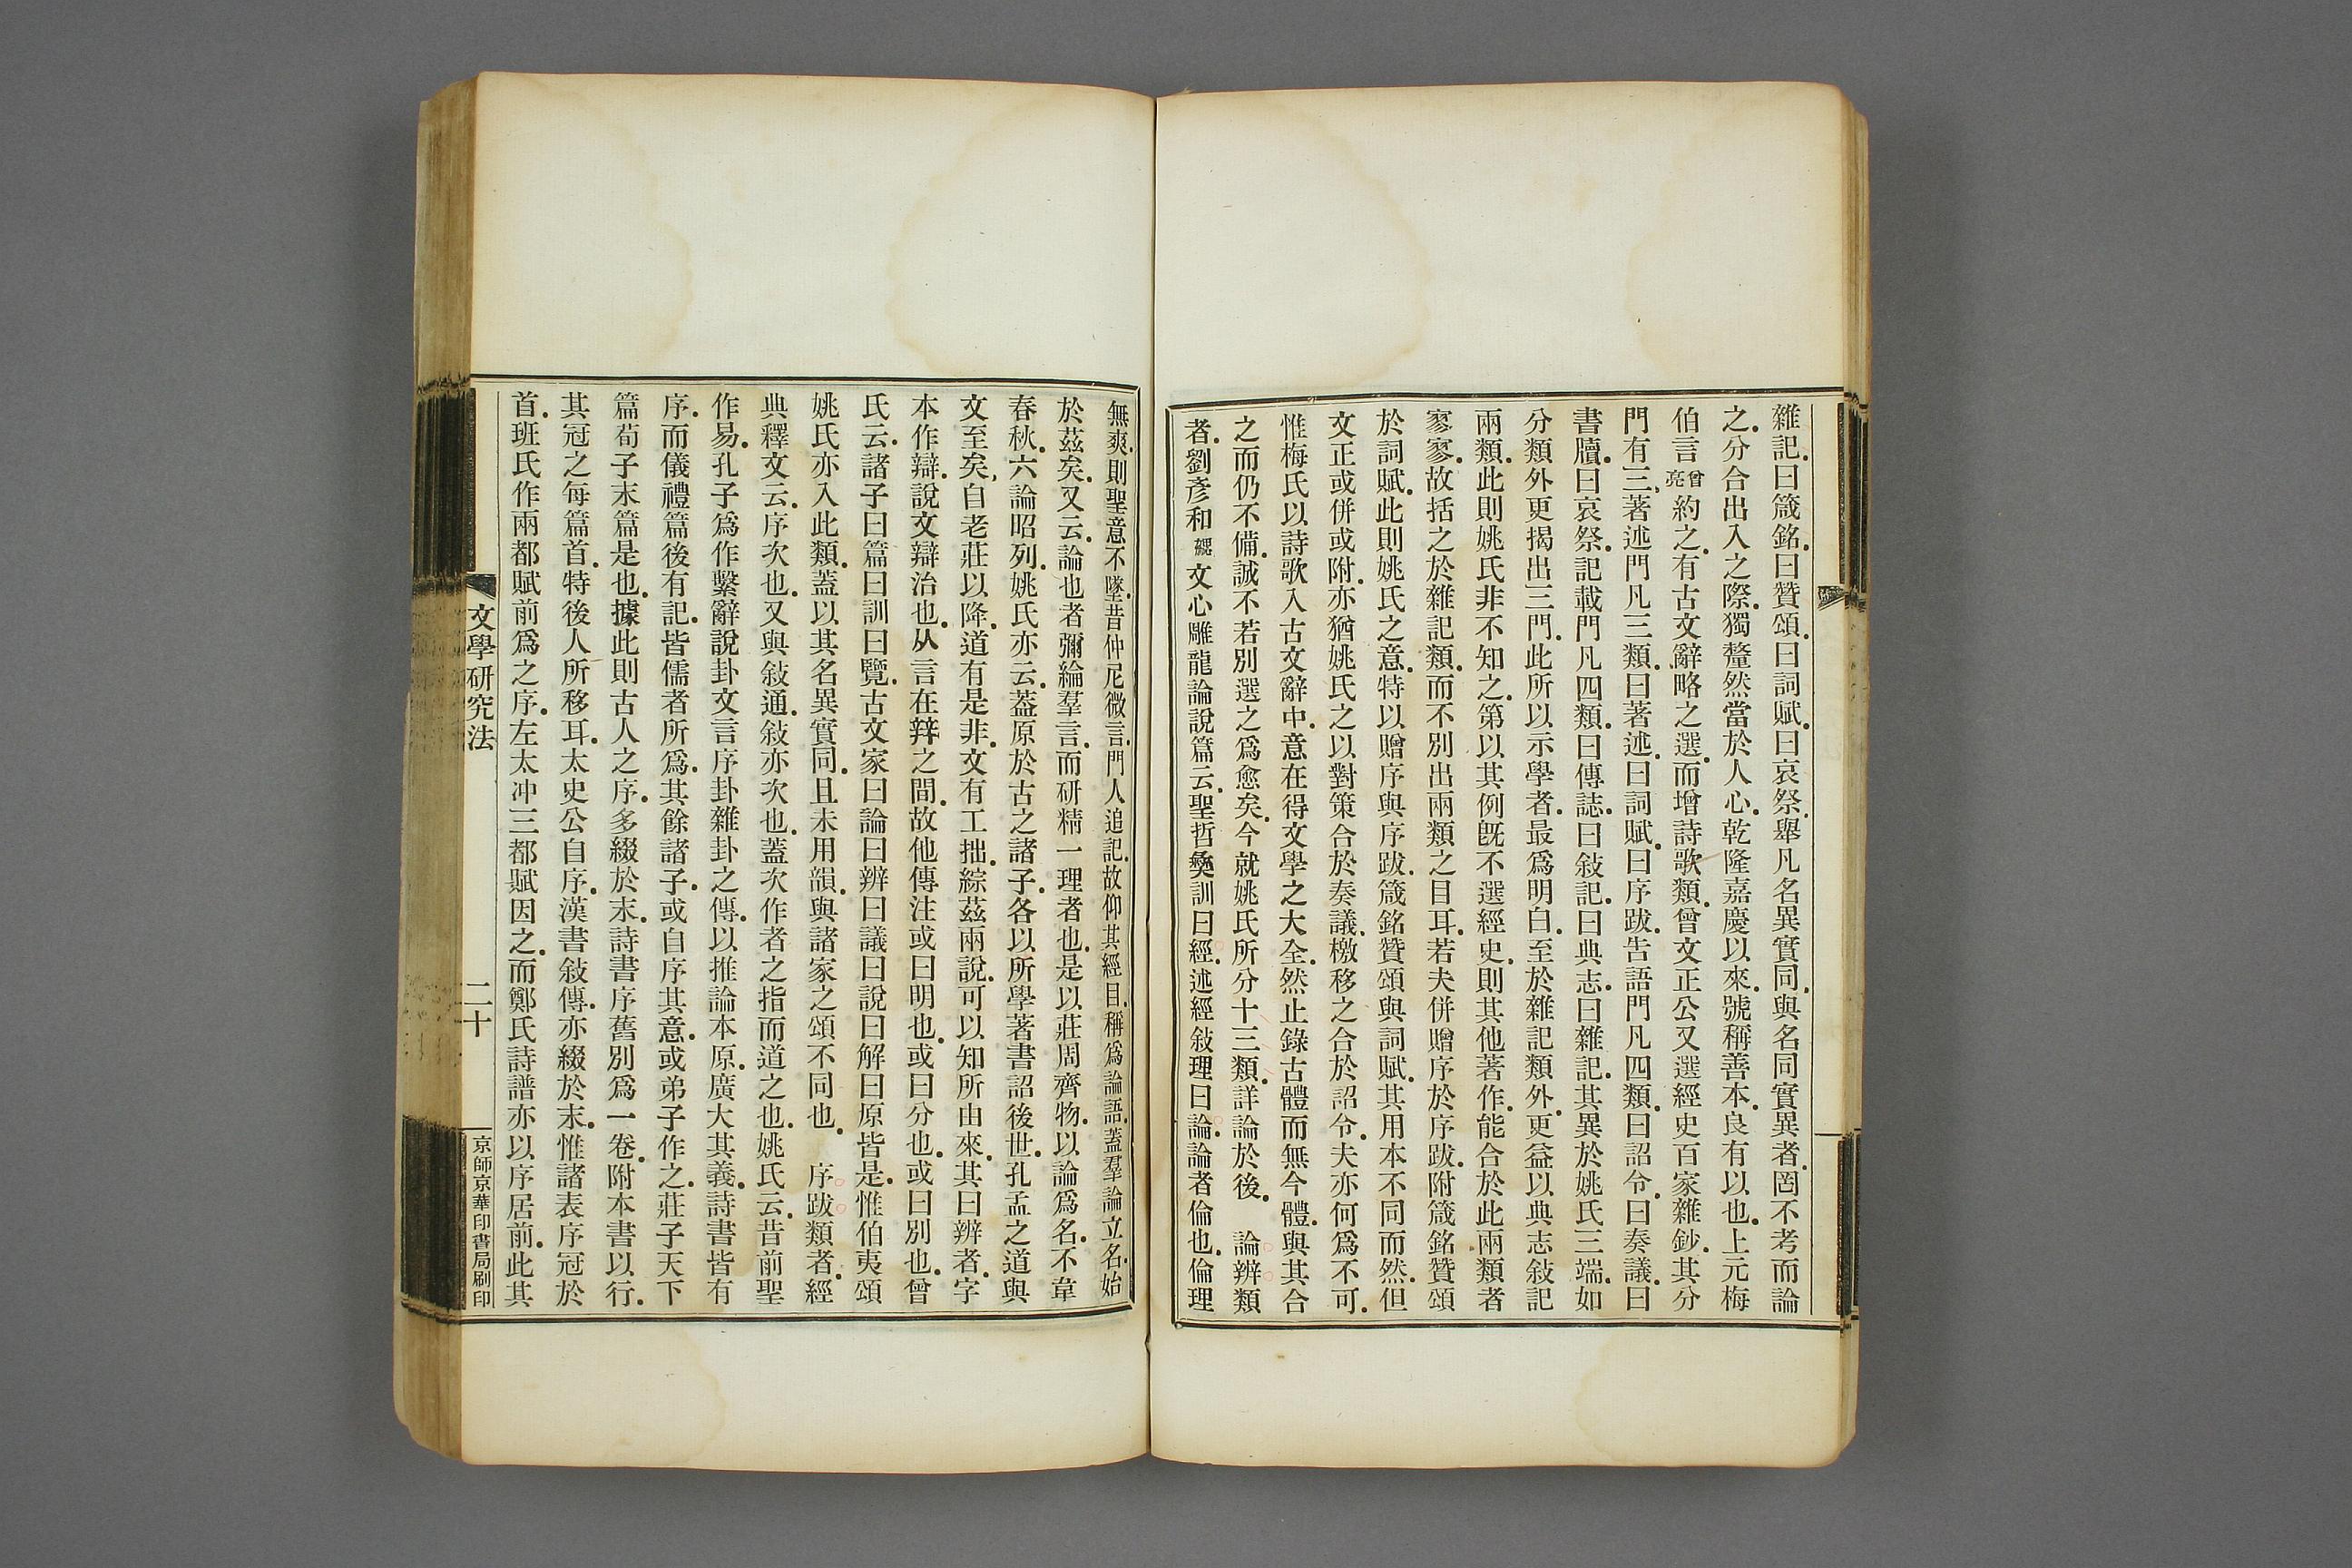 雜記.曰箴銘.曰贊頌.曰詞賦.曰哀祭.舉凡名異實同.與名同實異者.罔不考而論
之.分合出入之際.獨釐然當於人心.乾隆嘉慶以來.號稱善本.良有以也.上元梅
伯言曾亮約之.有古文辭略之選.而增詩歌類.曾文正公又選經史百家雜鈔.其分
門有三.著述門凡三類.曰著述.曰詞賦.曰序跋.告語門凡四類.曰詔令.曰奏議.曰
書牘.曰哀祭.記載門凡四類.曰傳誌.曰敍記.曰典志.曰雜記.其異於姚氏三端.如
分類外更揭出三門.此所以示學者.最爲明白.至於雜記類外.更益以典志敍記
兩類.此則姚氏非不知之.第以其例旣不選經史.則其他著作.能合於此兩類者
寥寥.故括之於雜記類.而不別出兩類之目耳.若夫併贈序於序跋.附箴銘贊頌
於詞賦.此則姚氏之意.特以贈序與序跋.箴銘贊頌與詞賦.其用本不同而然.但
文正或併或附.亦猶姚氏之以對策合於奏議.檄移之合於詔令.夫亦何爲不可.
惟梅氏以詩歌入古文辭中.意在得文學之大全.然止錄古體而無今體.與其合
之而仍不備.誠不若別選之爲愈矣.今就姚氏所分十三類.詳論於後.　論辨類
者.劉彥和勰文心雕龍論說篇云.聖哲彝訓曰經.述經敍理曰論.論者倫也.倫理
無爽.則聖意不墜.昔仲尼微言.門人追記.故仰其經目.稱爲論語.蓋羣論立名.始
於茲矣.又云.論也者彌綸羣言.而研精一理者也.是以莊周齊物.以論爲名.不韋
春秋.六論昭列.姚氏亦云.蓋原於古之諸子.各以所學著書詔後世.孔孟之道與
文至矣.自老莊以降.道有是非.文有工拙.綜茲兩說.可以知所由來.其曰辨者.字
本作辯.說文辯治也.从言在辡之間.故他傳注或曰明也.或曰分也.或曰別也.曾
氏云.諸子曰篇曰訓曰覽.古文家曰論曰辨曰議曰說曰解曰原皆是.惟伯夷頌
姚氏亦入此類.蓋以其名異實同.且未用韻.與諸家之頌不同也.　序跋類者.經
典釋文云.序次也.又與敍通.敍亦次也.蓋次作者之指而道之也.姚氏云.昔前聖
作易.孔子爲作繫辭說卦文言序卦雜卦之傳.以推論本原.廣大其義.詩書皆有
序.而儀禮篇後有記.皆儒者所爲.其餘諸子.或自序其意.或弟子作之.莊子天下
篇荀子末篇是也.據此則古人之序.多綴於末.詩書序舊別爲一卷.附本書以行.
其冠之每篇首.特後人所移耳.太史公自序.漢書敍傳.亦綴於末.惟諸表序冠於
首.班氏作兩都賦前爲之序.左太冲三都賦因之.而鄭氏詩譜亦以序居前.此其
文學研究法　二十　京師京華印書局刷印